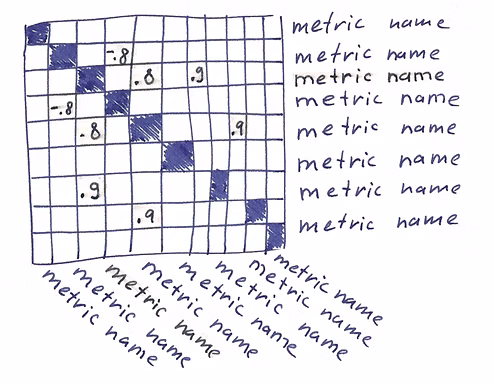 metric name
-.8 metric name
.8 .9 metric name
-.8 metric name
.8 .9 metric name
metric name
.9 metric name
.9 metric name
metric name
metric name
metric name
metric name
metric name
metric name
metric name
metric name